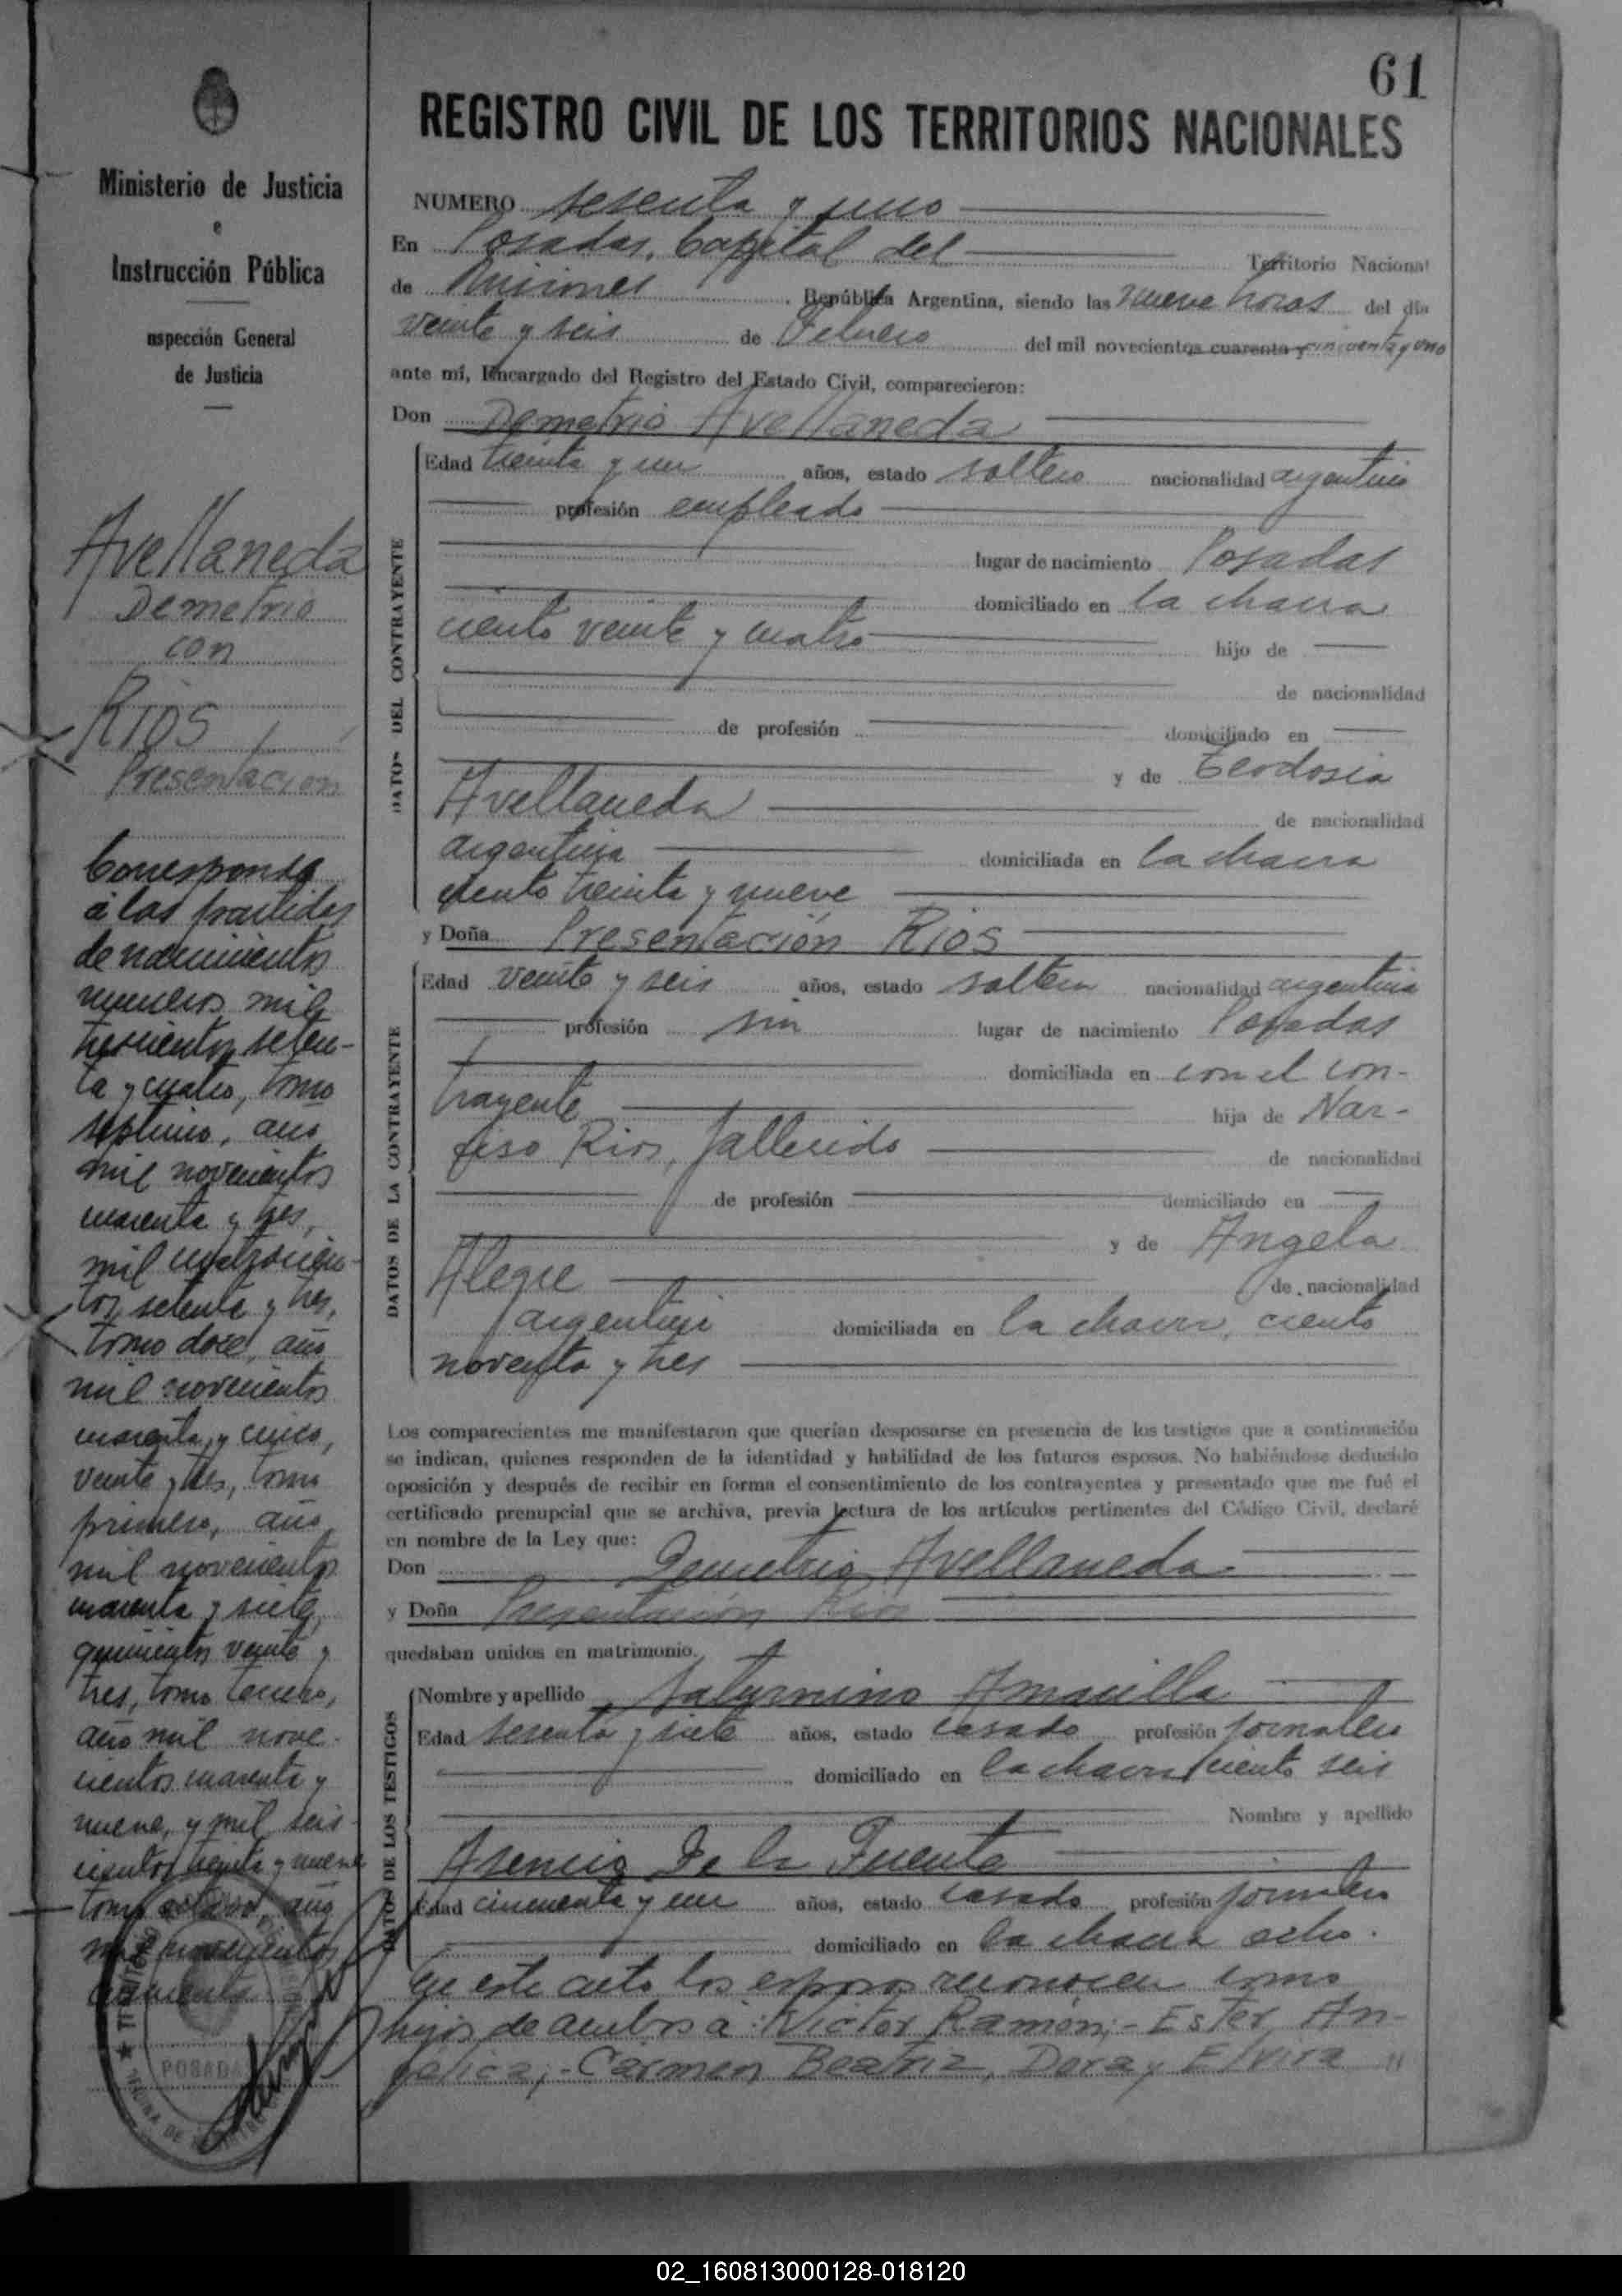 61
Ministerio de Justicia
e
Instrucción Pública
nspección General
de Justicia
Avellaneda
Demetrio
con
Rios
Presentacion
Corresponde
a las partidas
de nacimientos
numeros mil
trescientos seten-
ta y cuatro, tomo
septimo, año
mil novecientos
cuarenta y tres,
mil cuatrocien-
tos setenta y tres,
tomo doce, año
mil novecientos
cuarenta y cinco,
veinte y tres, tomo
primero, año
mil novecientos
cuarenta y siete,
quinientos veinte y
tres, tomo tercero,
año mil nove-
cientos cuarenta y
nueve, y mil seis-
cientos treinta y nueve
tomo octavo, año
mil novecientos
POSADAS
REGISTRO CIVIL DE LOS TERRITORIOS NACIONALES
NUMERO sesenta y uno
En Posadas, Capital del Territorio Nacional
de Misiones, República Argentina, siendo las nueve horas del día
veinte y seis de Febrero del mil novecientos cuarenta y cincuenta y uno
ante mí, Encargado del Registro del Estado Civil, comparecieron:
Don Demetrio Avellaneda
DATOS DEL CONTRAYENTE
Edad treinta y un años, estado soltero nacionalidad argentino
profesión empleado
lugar de nacimiento Posadas
domiciliado en la chacra
ciento veinte y cuatro hijo de
de nacionalidad
de profesión domiciliado en
y de Teodosia
Avellaneda de nacionalidad
argentina domiciliada en la chacra
ciento treinta y nueve
y Doña Presentación Rios
DATOS DE LA CONTRAYENTE
Edad veinte y seis años, estado soltera nacionalidad argentina
profesión sin lugar de nacimiento Posadas
domiciliada en con el con-
trayente hija de Nar-
ciso Rios, fallecido de nacionalidad
de profesión domiciliado en
y de Angela
Alegre de nacionalidad
argentina domiciliada en la chacra, ciento
noventa y tres
Los comparecientes me manifestaron que querían desposarse en presencia de los testigos que a continuación
se indican, quienes responden de la identidad y habilidad de los futuros esposos. No habiéndose deducido
oposición y después de recibir en forma el consentimiento de los contrayentes y presentado que me fué el
certificado prenupcial que se archiva, previa lectura de los artículos pertinentes del Código Civil, declaré
en nombre de la Ley que:
Don Demetrio Avellaneda
y Doña Presentación Rios
quedaban unidos en matrimonio.
DATOS DE LOS TESTIGOS
Nombre y apellido Saturnino Amarilla
Edad sesenta y siete años, estado casado profesión jornalero
domiciliado en la chacra ciento seis
Nombre y apellido
Asencio De la Fuente
Edad cincuenta y un años, estado casado profesión jornalero
domiciliado en la chacra ocho.
En este acto los esposos reconocen como
hijos de ambos a: Victor Ramón;- Ester An-
gelica;- Carmen Beatriz, Dora y Elvira
02_160813000128-018120